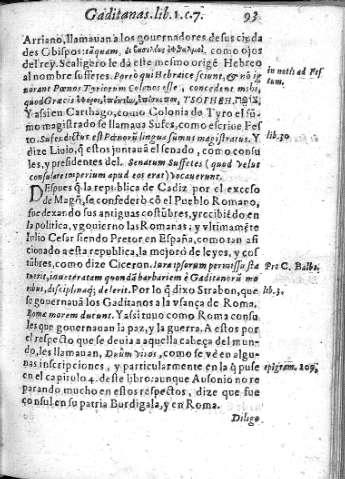 Gaditanas. lib. 1. c. 7. 93
Arriano, llamauan a los gouernadores de sus ciuda
des Obispos: tãquam, como ojos
del rey. Scaligero le dà este mesmo origẽ Hebreo
al nombre suffetes. Porrò qui Hebraice sciunt, & nõ ig
norant Pœnos Tyriorum Colonos esse, concedent mihi,
quod Græcis TSOPHEH,
Y assi en Carthago, como Colonia de Tyro el sũ-
mo magistrado se llamaua Sufes, como escriue Fes
to. Sufes dictus est Pœnorũ lingua sũmus magistratus. Y
dize Liuio, q̃ estos juntauã el senado, como consu
les, y presidentes del. Senatum Suffetes (quod velut
consulare imperium apud eos erat) vocauerunt.
DEspues q̃ la republica de Cadiz por el excesso
de Magõ, se confederò cõ el Pueblo Romano,
fue dexando sus antiguas costũbres, y recibiẽdo en
la politica, y gouierno las Romanas; y vltimamẽte
Iulio Cesar siendo Pretor en España, como tan afi
cionado a esta republica, la mejorò de leyes, y cos
tũbres, como dize Ciceron. Iura ipsorum permissu sta
tuerit, inueteratam quandã barbariem è Gaditanorũ mo
ribus, disciplinaq; delerit. Por lo q̃ dixo Strabon, que
se gouernauã los Gaditanos a la vsança de Roma.
Romæ morem durunt. Y assi tuuo como Roma consu
les que gouernauan la paz, y la guerra. A estos por
el respecto que se deuia a aquella cabeça del mun-
do, les llamauan, Duũm viros, como se vè en algu-
nas inscripciones, y particularmente en la q̃ puse
en el capitulo 4. deste libro: aunque Ausonio no re
parando mucho en estos respectos, dize que fue
cõsul en su patria Burdigala, y en Roma.
Diligo
in notis ad Fes
tum.
lib. 30.
Pro C. Balbo.
lib. 3.
epigram. 109.